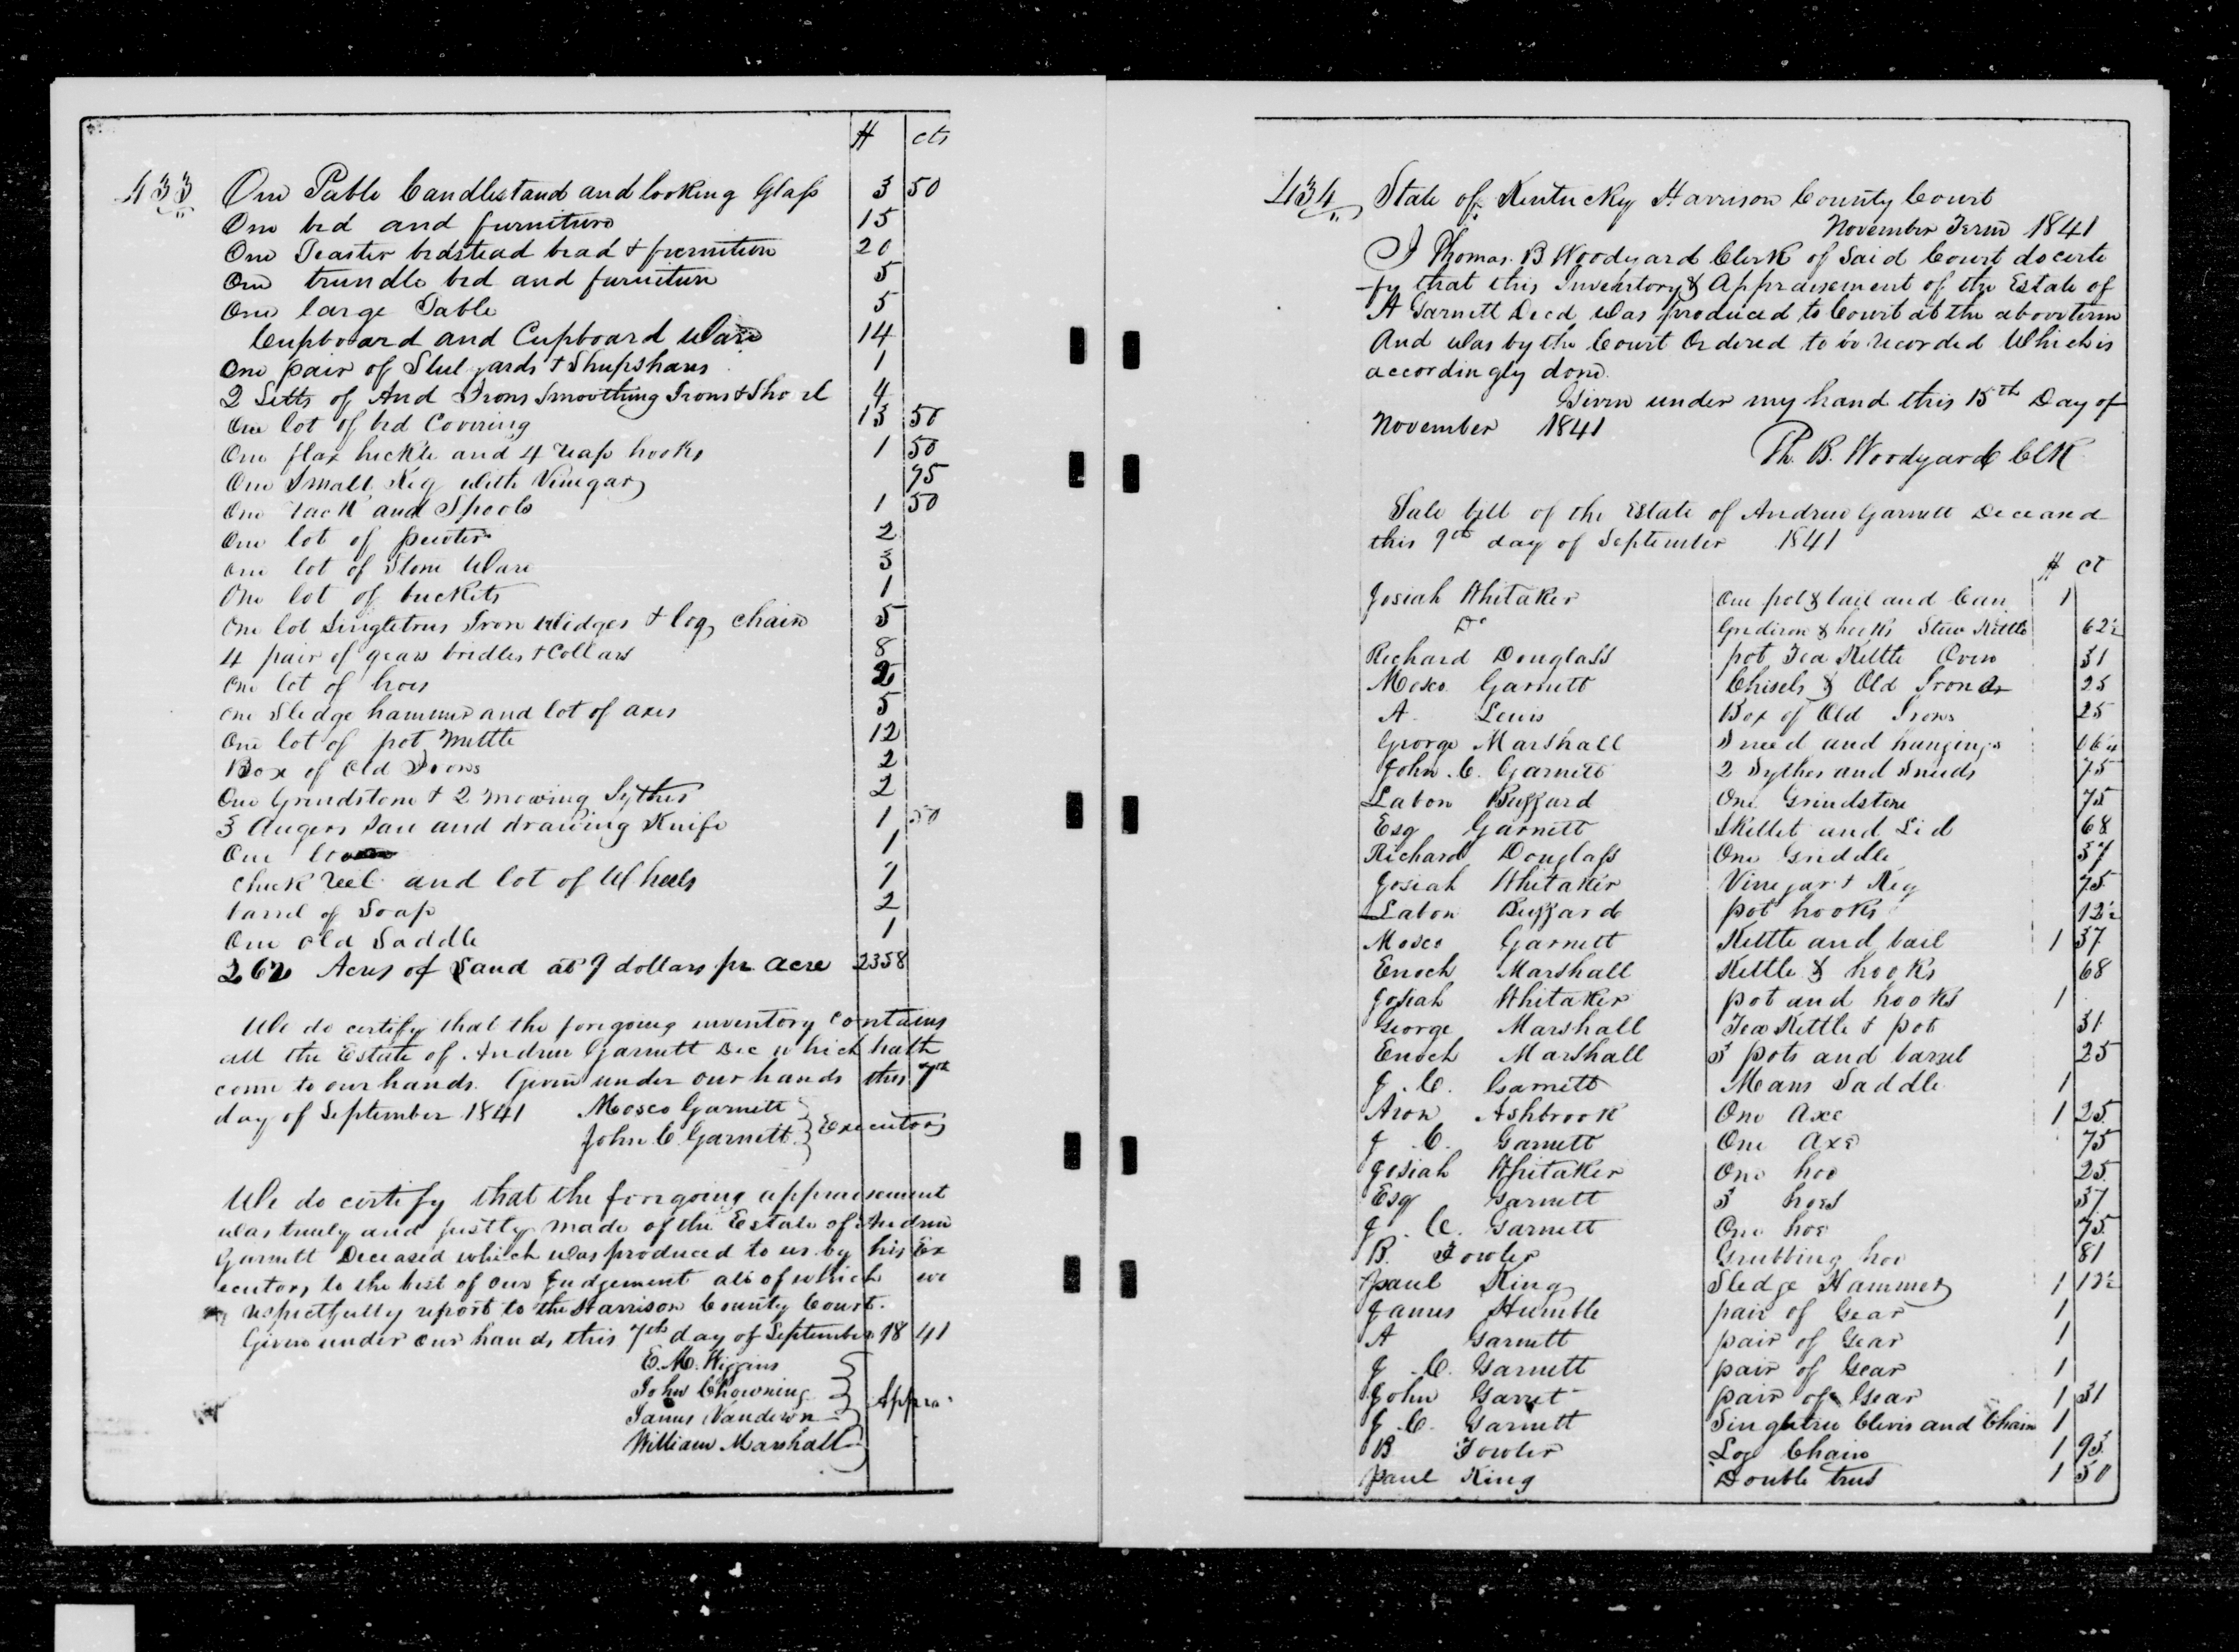 $ cts
433 One Table Candlestand and looking Glass 3 50
One bed and furniture 15
One Teaster bedstead bead & furniture 20
One trundle bed and furniture 5
One large Table 5
Cupboard and Cupboard Ware 14
One pair of Stulyards & Shupshares 1
2 Setts of And Irons Smoothing Irons & Shovel 4
One lot of bed Covering 13 50
One flax hickle and 4 reap hooks 1 50
One Small Keg with Vinegar 75
One rack and Spools 1 50
One lot of pewter 2
One lot of Stone Ware 3
One lot of buckets 1
One lot Singletrus Iron Widges & log chain 5
4 pair of gears bridles & Collars 8
One lot of hoes 2
One Sledge hammer and lot of axes 5
One lot of pot mettle 12
Box of Old Irons 2
One Grindstone & 2 mowing Sythes 2
3 Augers Saw and drawing Knife 1 50
One 1
Chuck reel and lot of Wheels 1
barrel of Soap 2
One old Saddle 1
262 Acres of Land at 9 dollars pr acre 2358
We do certify that the foregoing inventory contains
all the Estate of Andrew Garnett Dec which hath
come to our hands. Given under our hands this 7th
day of September 1841 Mosco Garnett
John C. Garnett } Executors
We do certify that the foregoing appraisement
was truly and justly made of the Estate of Andrew
Garnett Deceased which was produced to us by his Ex
ecutors to the best of our Judgement all of which we
respectfully report to the Harrison County Court.
Given under our hands this 7th day of September 1841
E. M. Wiggins
John Chowning
James Vanderen
William Marshall } Appra
434 State of Kentucky Harrison County Court
November Term 1841
I Thomas B Woodyard Clerk of Said Court do certi
-fy that this Inventory & Appraisement of the Estate of
A Garnett Decd was produced to Court at the above term
And was by the Court Ordered to be recorded Which is
accordingly done.
Given under my hand this 15th Day of
November 1841
Th. B. Woodyard Clk
Sale bill of the Estate of Andrew Garnett Deceased
this 9th day of September 1841
$ ct
Josiah Whitaker One pot & bail and Can 1
Do Gridiron & hooks Stew Kettle 62½
Richard Douglass pot Tea Kettle Oven 31
Mosco Garnett Chisels & Old Irons 25
A Lewis Box of Old Irons 25
George Marshall Sneed and hangings 06¼
John C. Garnett 2 Sythes and Sneeds 75
Labon Buzzard One Grindstone 75
Esq Garnett Skillet and Lid 68
Richard Douglass One Griddle 37
Josiah Whitaker Vinegar & Keg 75
Labon Buzzard pot hooks 12½
Mosco Garnett Kettle and bail 1 37
Enoch Marshall Kettle & hooks 68
Josiah Whitaker pot and hooks 1
George Marshall Tea Kettle & pot 31
Enoch Marshall 3 pots and barrel 25
J. C. Garnett Mans Saddle 1
Aron Ashbrook One Axe 1 25
J. C. Garnett One Axe 75
Josiah Whitaker One hoe 25
Esq Garnett 3 hoes 37
J. C. Garnett One hoe 75
B. Fowler Grubbing hoe 81
Paul King Sledge Hammer 1 12½
James Humble pair of Gear 1
A Garnett pair of Gear 1
J. C. Garnett pair of Gear 1
John Garret pair of Gear 1 31
J. C. Garnett Singletree Clevis and Chain 1
B Fowler Log Chain 1 95
Paul King Double trees 1 50